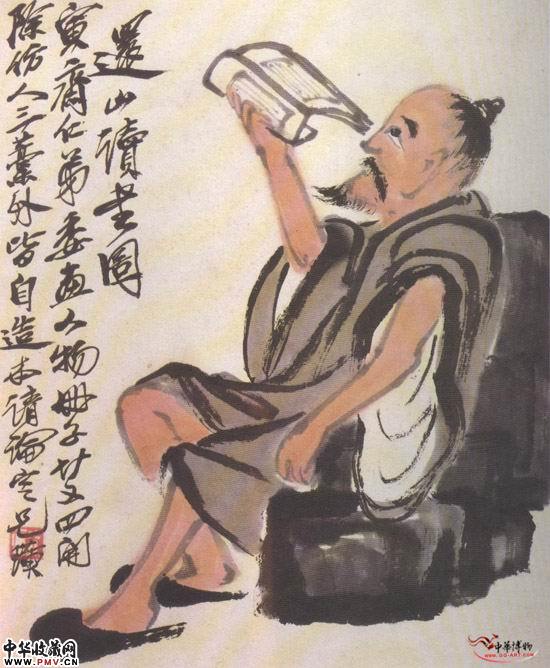 還山讀書圖
寅齋仁弟委畫人物冊子廿又四開
除仿人三藁外皆自造本請論定兄璜
中华收藏网
WWW.PMV.CN
中華博物
WWW.GG-ART.COM